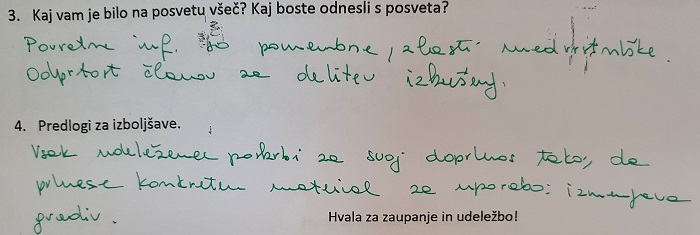 3. Kaj vam je bilo na posvetu všeč? Kaj boste odnesli s posveta?
Povratne inf. so pomembne, zlasti medvrstniške.
Odprtost članov za delitev izkušenj.
4. Predlogi za izboljšave.
Vsak udeleženec poskrbi za svoj doprinos tako, da
prinese konkreten material za uporabo: izmenjava
gradiv.
Hvala za zaupanje in udeležbo!